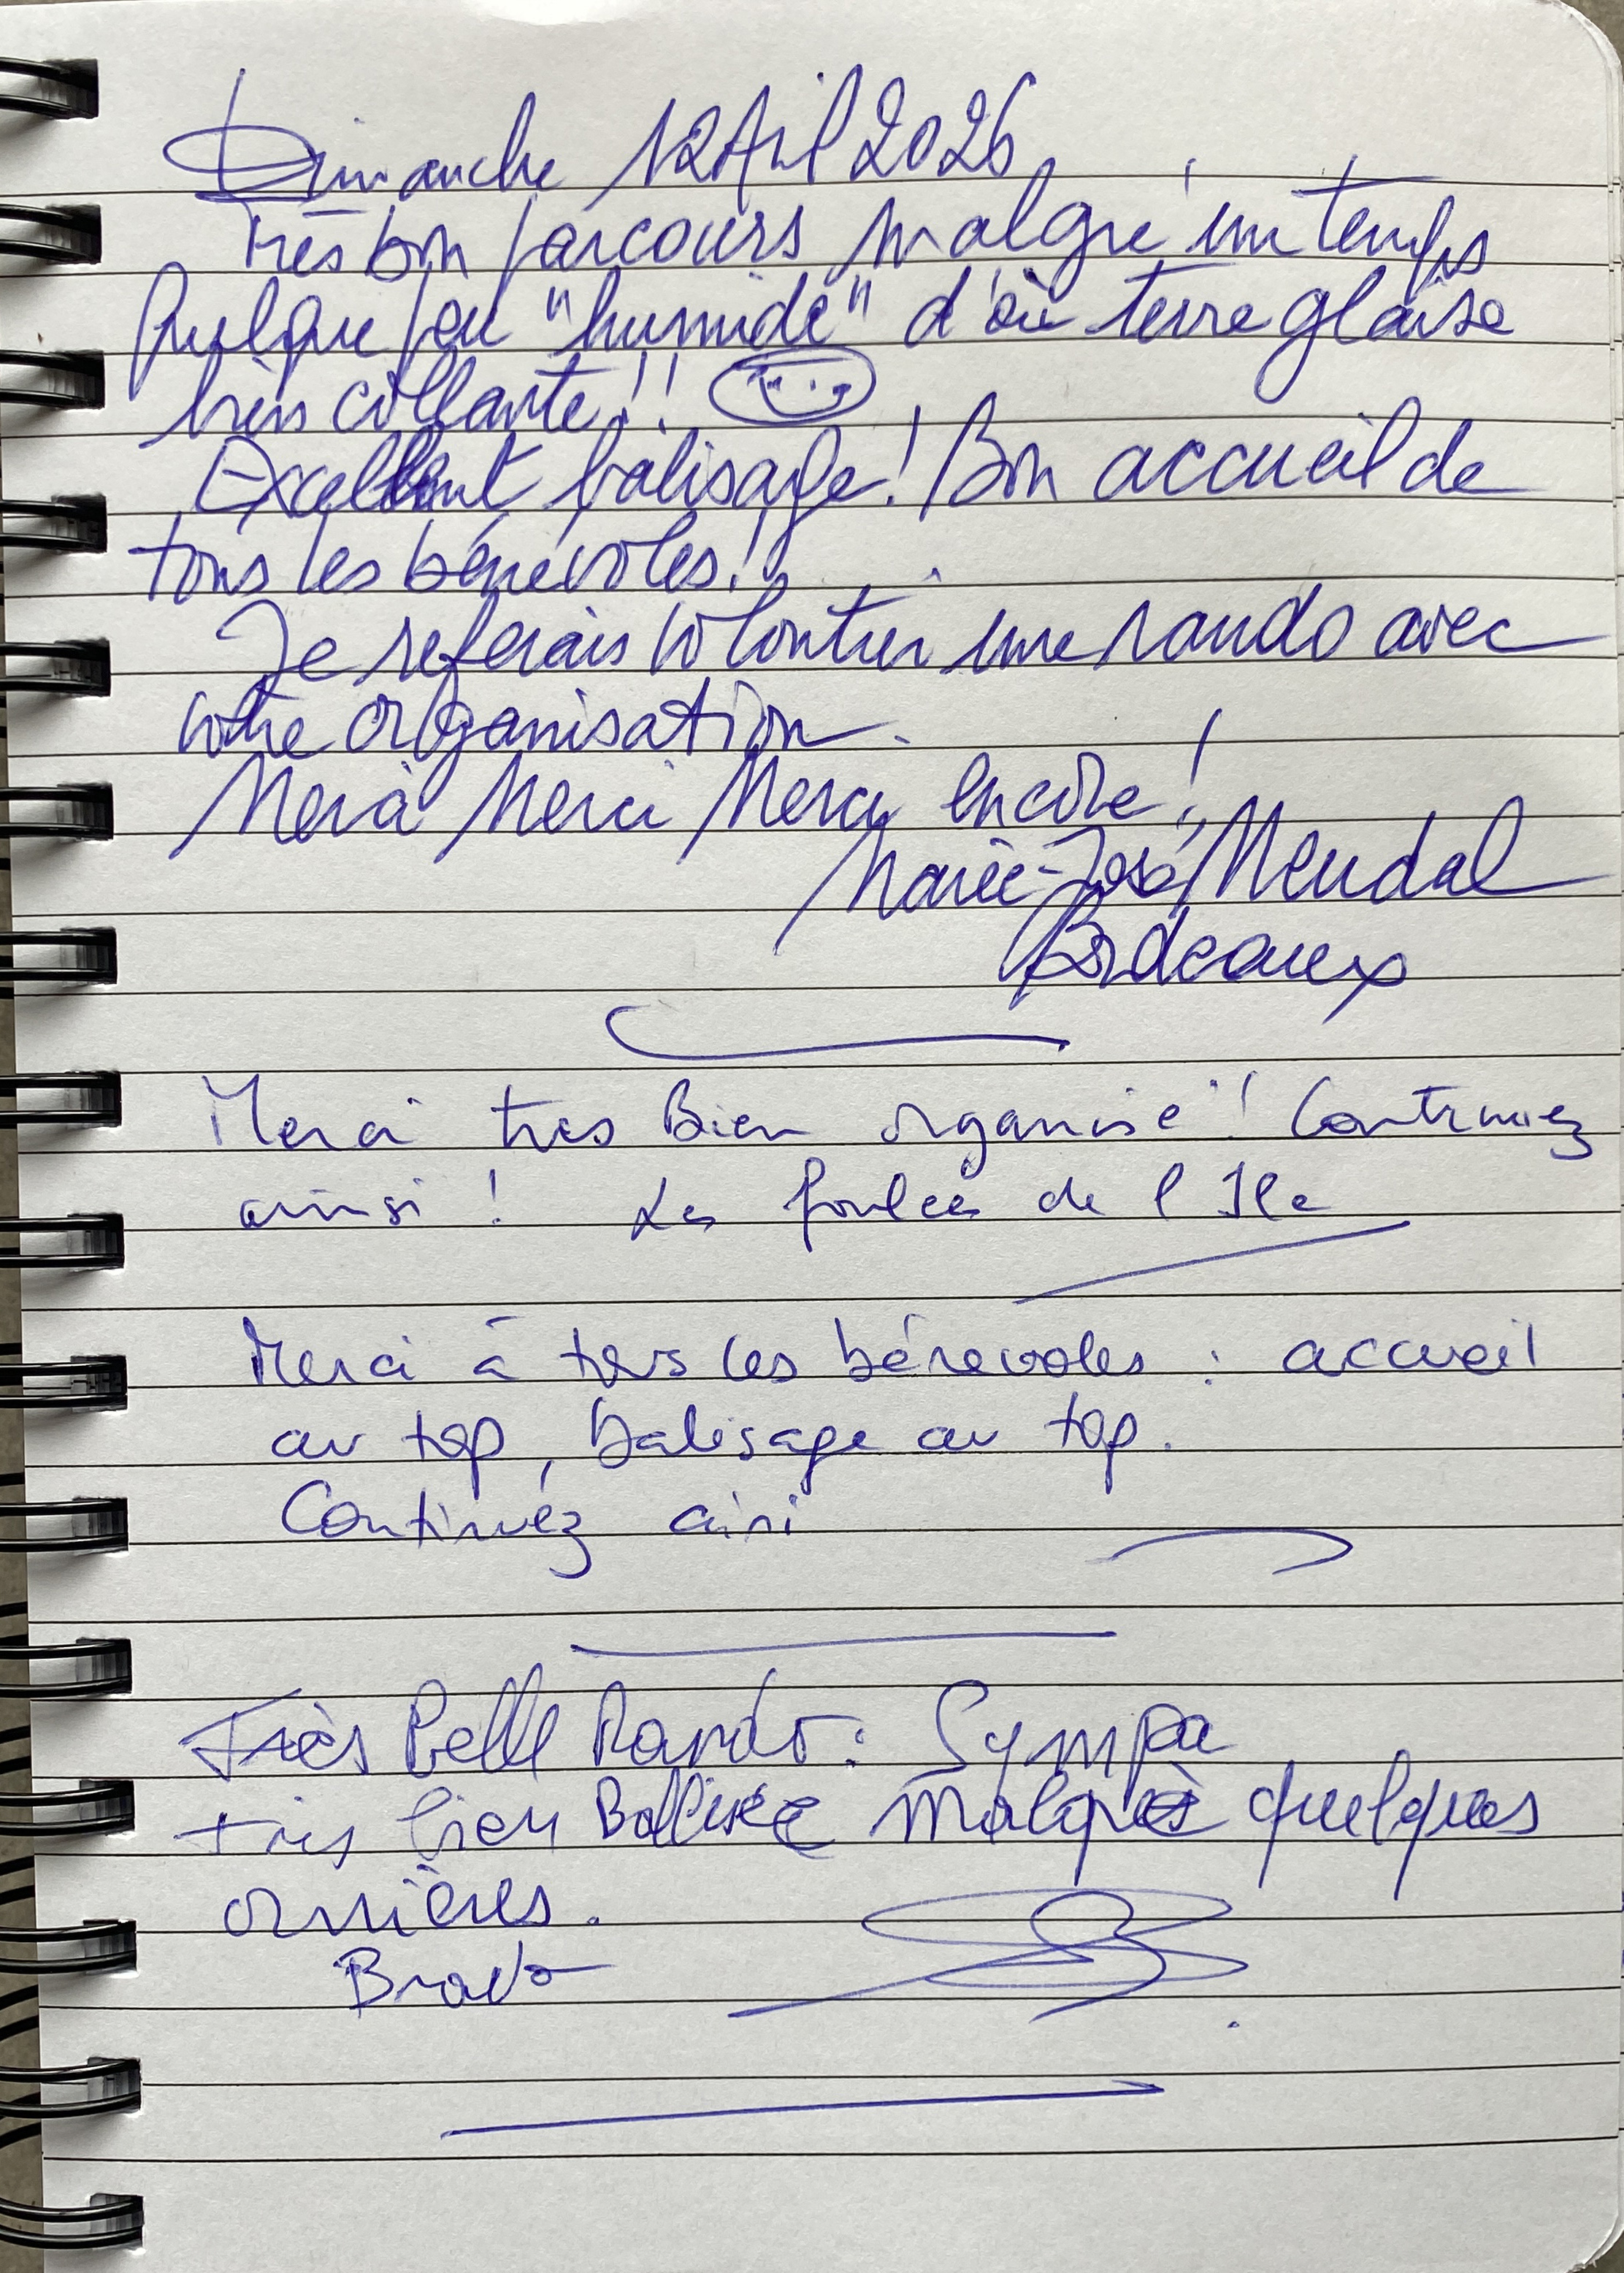 Dimanche 12 Avril 2026
Très bon parcours malgré un temps
quelque peu "humide" d'où terre glaise
très collante !! 
Excellent balisage ! Bon accueil de
tous les bénévoles !
Je referais volontier une rando avec
votre organisation.
Merci Merci Merci encore !
Marie-José Mendal
Bordeaux
Merci tres Bien organisé ! Continuez
ainsi ! Les foulées de l Ile
Merci à tous les bénévoles : accueil
au top, balisage au top.
Continuez ainsi
Très Belle Rando : Sympa
très bien Ballisée malgrès quelques
ornières.
Bravo